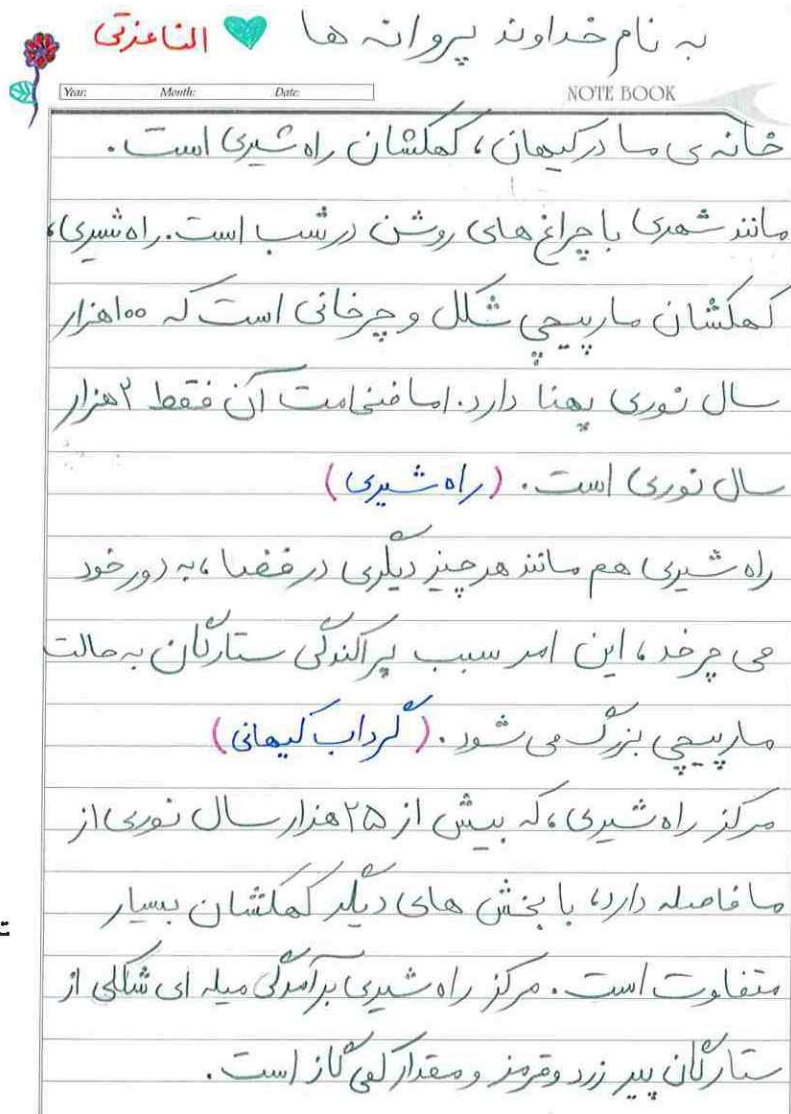 به نام خداوند پروانه ها النا عزتی
Year: Month: Date: NOTE BOOK
خانه ی ما در کیهان، کهکشان راه شیری است.
مانند شهری با چراغ های روشن در شب است. راه شیری،
کهکشان مارپیچی شکل و چرخانی است که ۱۰۰هزار
سال نوری پهنا دارد. اما ضخامت آن فقط ۲هزار
سال نوری است. (راه شیری)
راه شیری هم مانند هر چیز دیگری در فضا، به دور خود
می چرخد، این امر سبب پراکندگی ستارگان به حالت
مارپیچی بزرگ می شود. (گرداب کیهانی)
مرکز راه شیری، که بیش از ۲۵هزار سال نوری از
ما فاصله دارد، با بخش های دیگر کهکشان بسیار
متفاوت است. مرکز راه شیری برآمدگی میله ای شکلی از
ستارگان پیر زرد و قرمز و مقدار کمی گاز است.